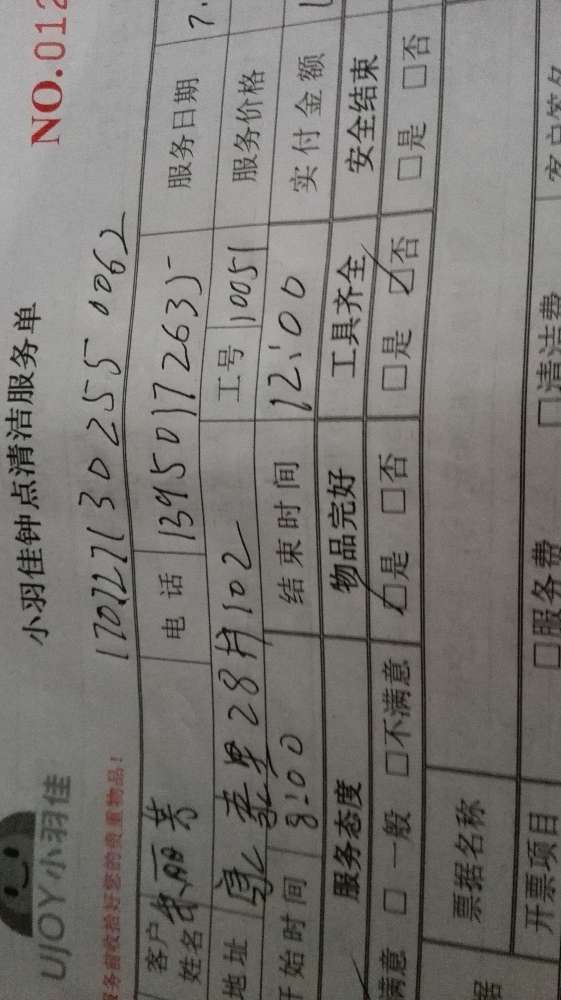 UJOY小羽佳
小羽佳钟点清洁服务单
NO.012
服务前收拾好您的贵重物品!
客户姓名 丽芳 电话 13950172635 服务日期 7.
地址 28 102 工号 10051 服务价格
开始时间 8:00 结束时间 12:00 实付金额
服务态度 物品完好 工具齐全 安全结束
满意 □ 一般 □不满意 ☑是 □否 □是 ☑否 □是 □否
票据名称
开票项目 □服务费 □清洁费 客户签名